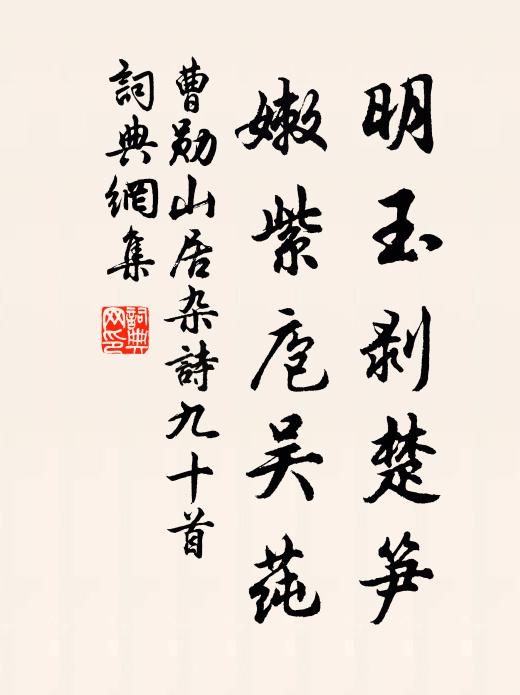 明玉剥楚笋
嫩紫庖吴莼
曹勛山居杂詩九十首
詞典網集
詞典网印